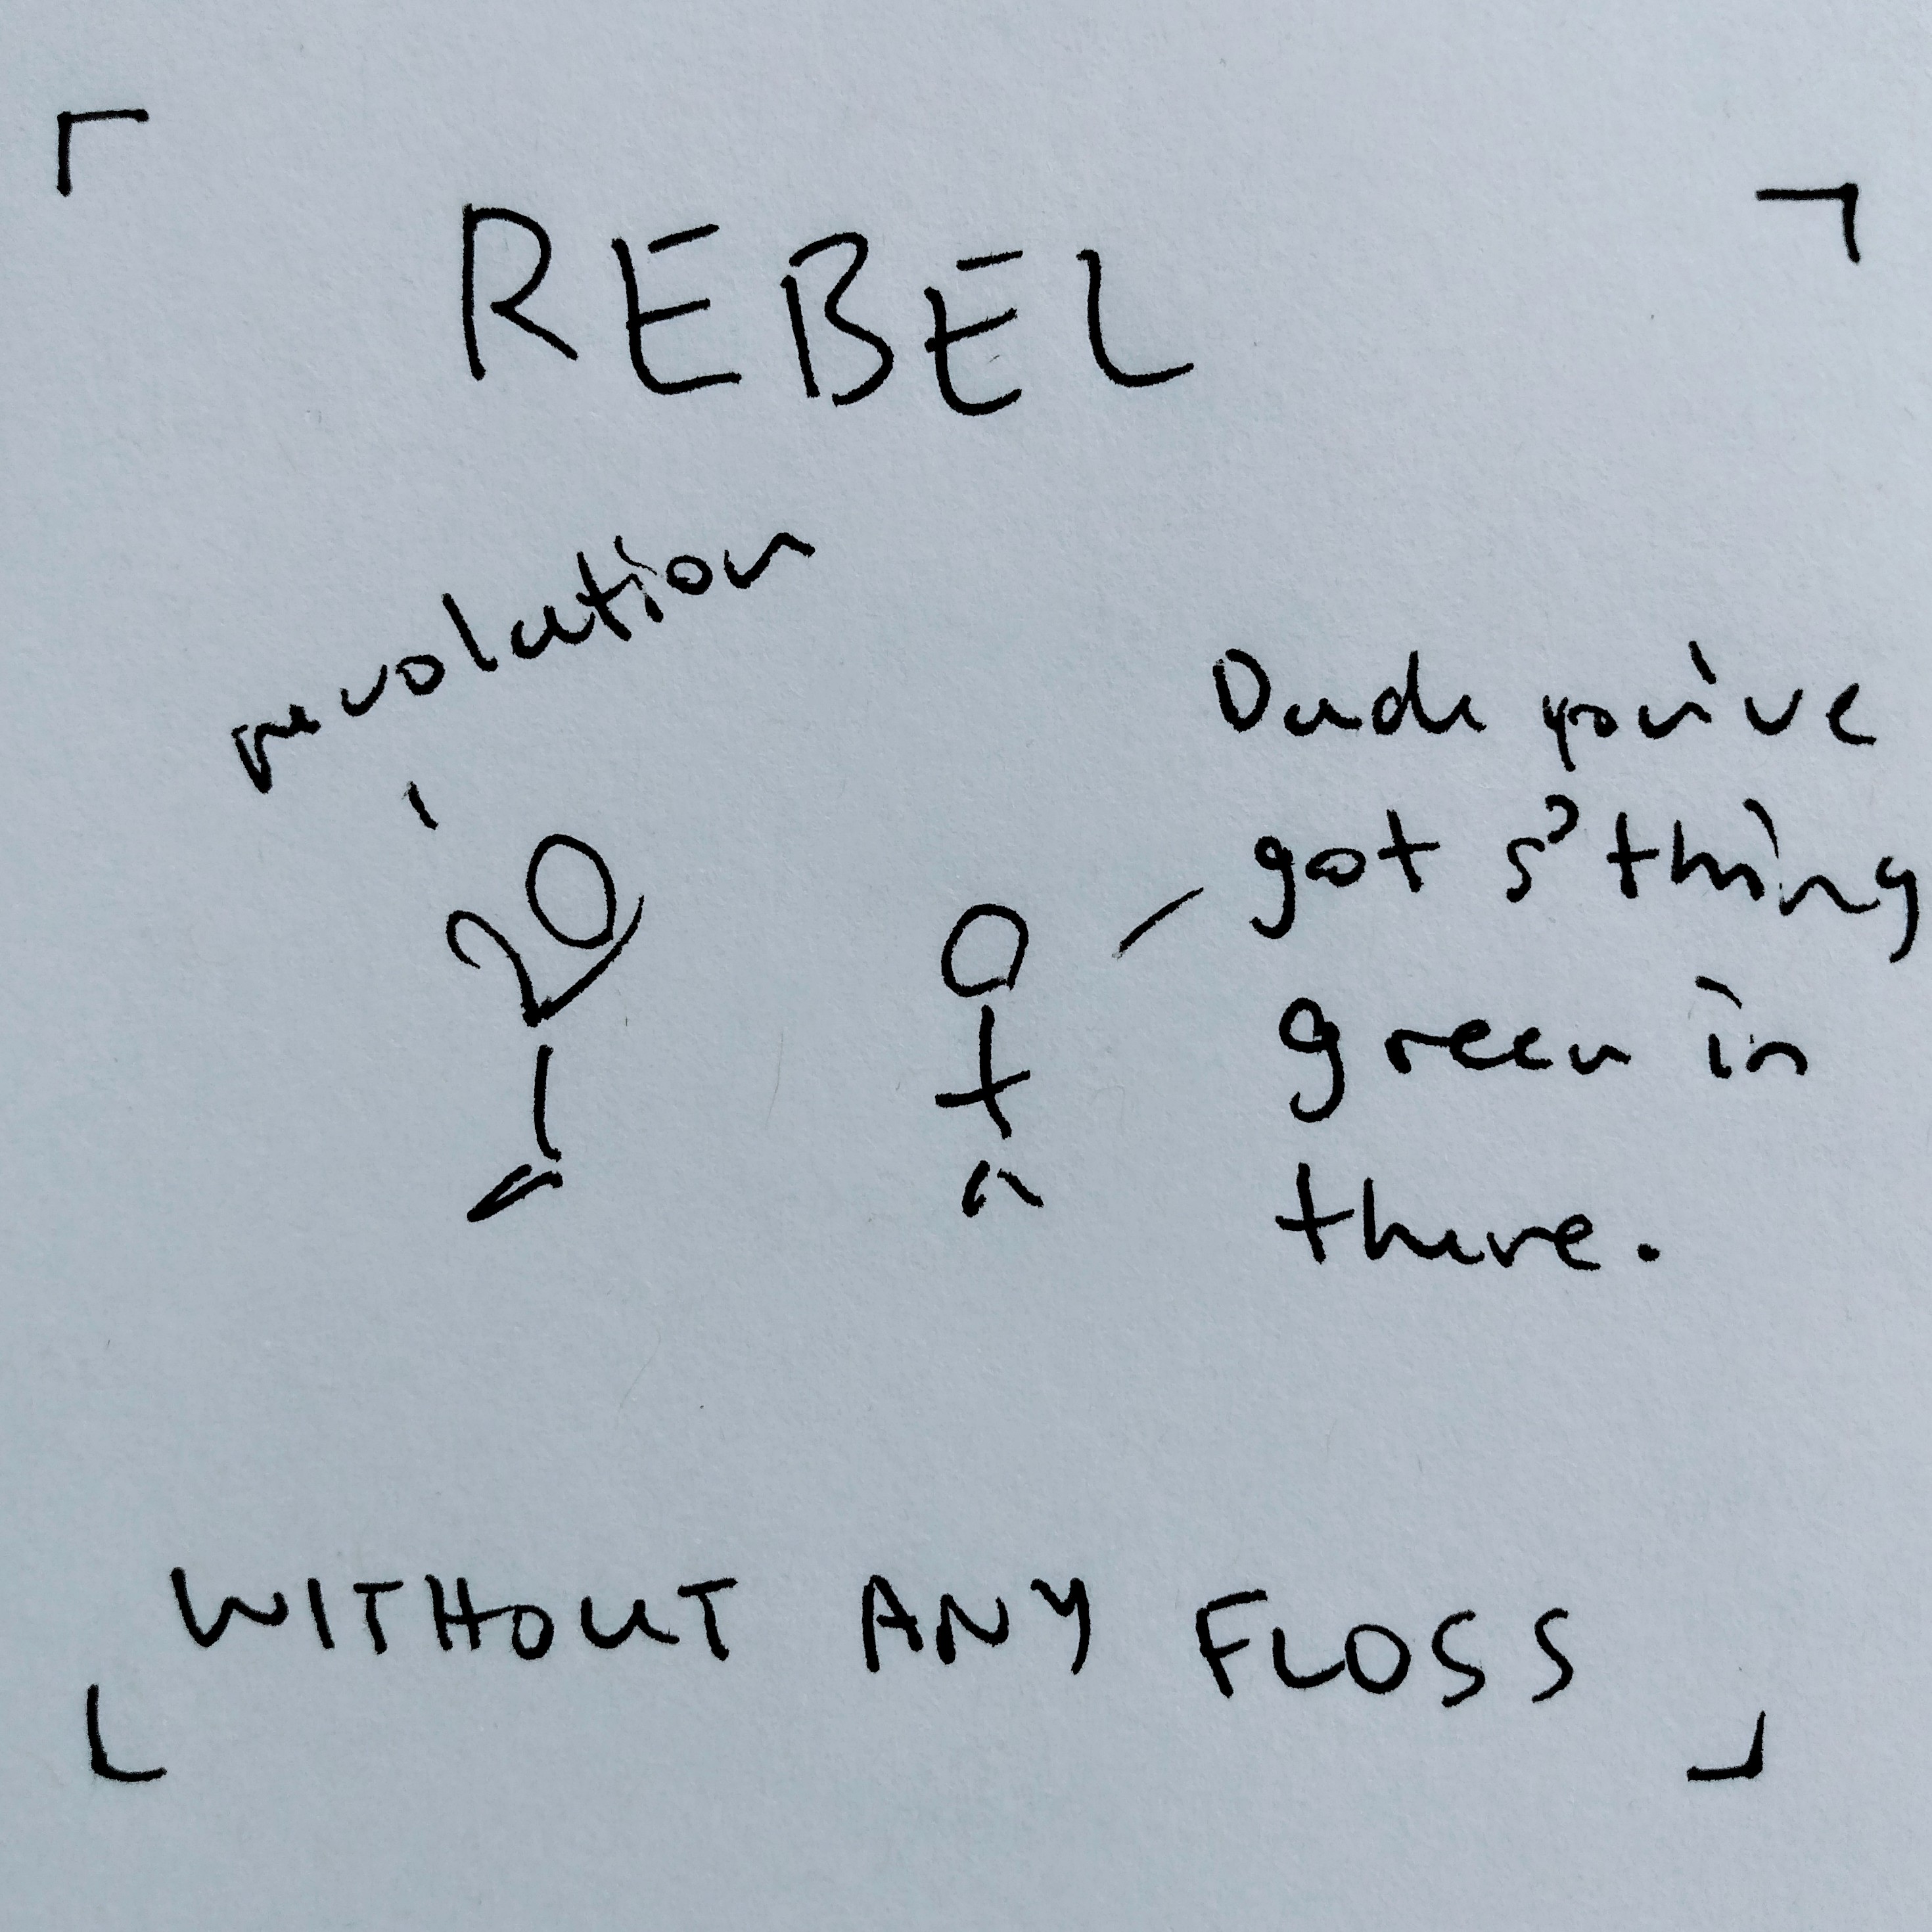 REBEL
revolution
Dude you've
got s'thing
green in
there.
WITHOUT ANY FLOSS